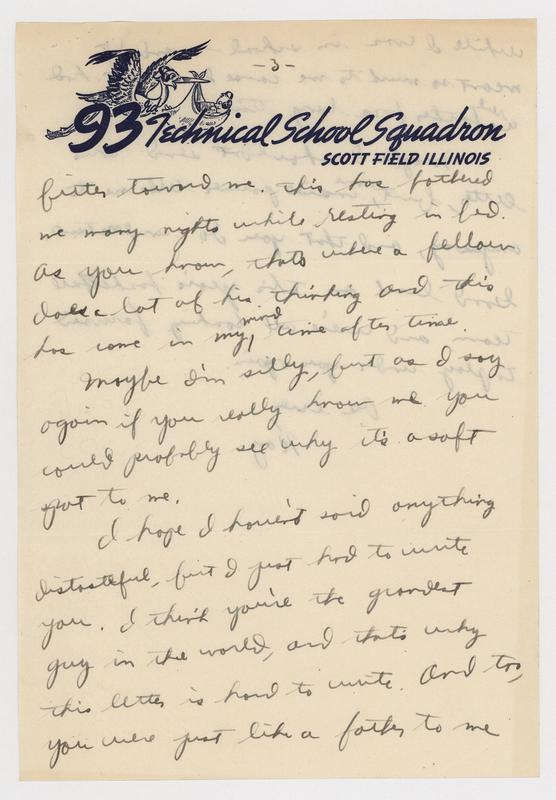 -3-
93 Technical School Squadron
SCOTT FIELD ILLINOIS
bitter toward me. This has bothered
me many nights while resting in bed.
As you know, thats where a fellow
does a lot of his thinking and this
has come in my mind time after time.
Maybe I'm silly, but as I say
again if you really know me you
could probably see why it's a soft
spot to me.
I hope I haven't said anything
distasteful, but I just had to write
you. I think you're the grandest
guy in the world, and thats why
this letter is hard to write. And too,
you were just like a father to me